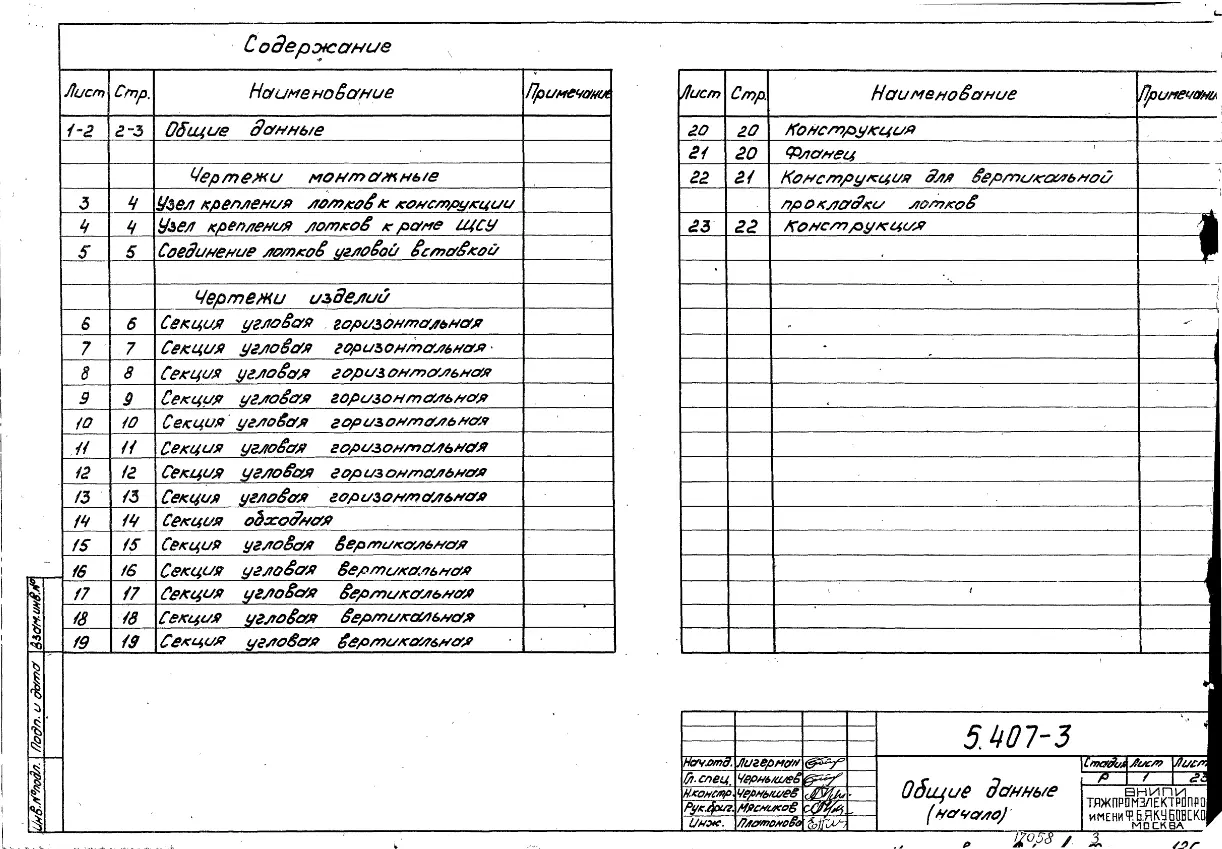 Содержание
Лист Стр. Наименование Примечание
1-2 2-3 Общие данные
Чертежи монтажные
3 4 Узел крепления лотков к конструкции
4 4 Узел крепления лотков к раме ЩСУ
5 5 Соединение лотков угловой вставкой
Чертежи изделий
6 6 Секция угловая горизонтальная
7 7 Секция угловая горизонтальная
8 8 Секция угловая горизонтальная
9 9 Секция угловая горизонтальная
10 10 Секция угловая горизонтальная
11 11 Секция угловая горизонтальная
12 12 Секция угловая горизонтальная
13 13 Секция угловая горизонтальная
14 14 Секция обходная
15 15 Секция угловая вертикальная
16 16 Секция угловая вертикальная
17 17 Секция угловая вертикальная
18 18 Секция угловая вертикальная
19 19 Секция угловая вертикальная
Лист Стр. Наименование Примечани
20 20 Конструкция
21 20 Фланец
22 21 Конструкция для вертикальной
прокладки лотков
23 22 Конструкция
Взам.инв.№
Подп. и дата
Инв.№подл.
5.407-3
Нач.отд. Лигерман
Гл.спец. Чернышев
Н.контр. Чернышев
Рук.бриг. Мясников
Инж. Платонова
Общие данные
(начало)
Стадия Лист Лист
Р 1 23
ВНИПИ
ТЯЖПРОМЭЛЕКТРОПРО
ИМЕНИ Ф.Б.ЯКУБОВСКО
МОСКВА
17058 1 3